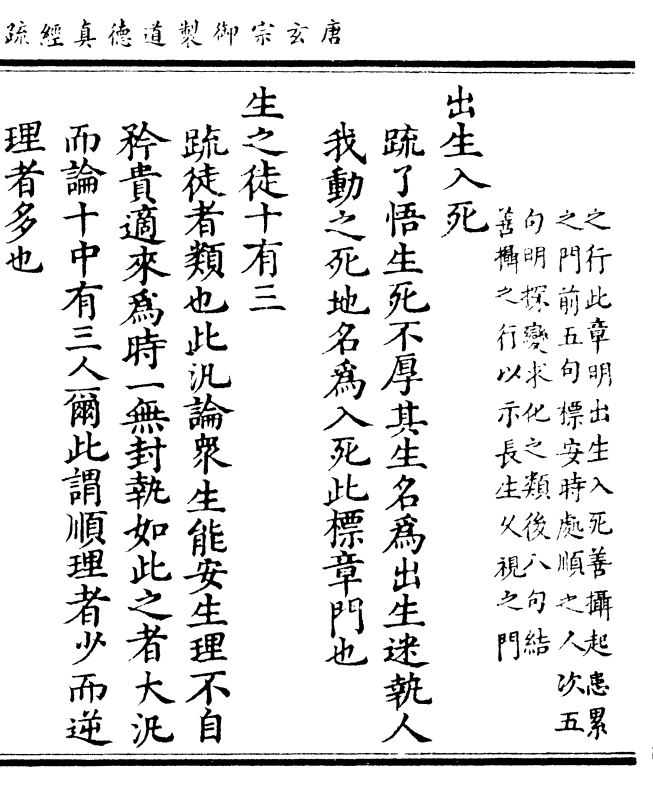 唐玄宗御製道德真經疏
之行此章明出生入死善攝起患累
之門前五句標安時處順之人次五
句明探變求化之類後八句結
善攝之行以示長生久視之門
出生入死
疏了悟生死不厚其生名爲出生迷執人
我動之死地名爲入死此標章門也
生之徒十有三
疏徒者類也此汎論衆生能安生理不自
矜貴適來爲時一無封執如此之者大汎
而論十中有三人爾此謂順理者少而逆
理者多也